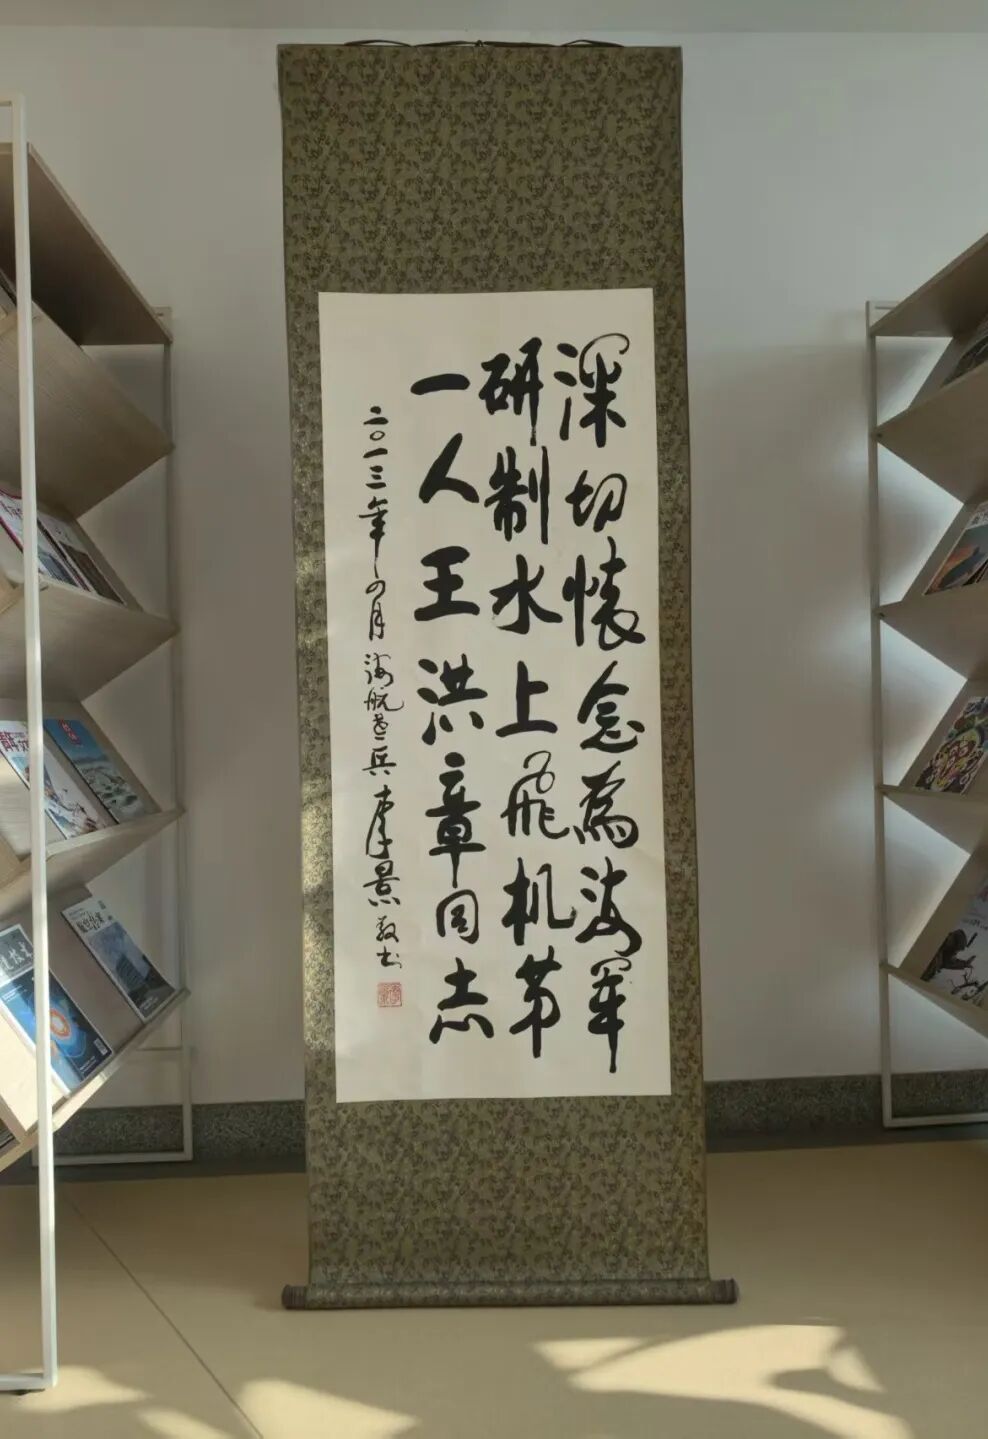 深切懷念為海军
研制水上飛机第
一人王洪章同志
二〇一三年四月 海航老兵 李景 书